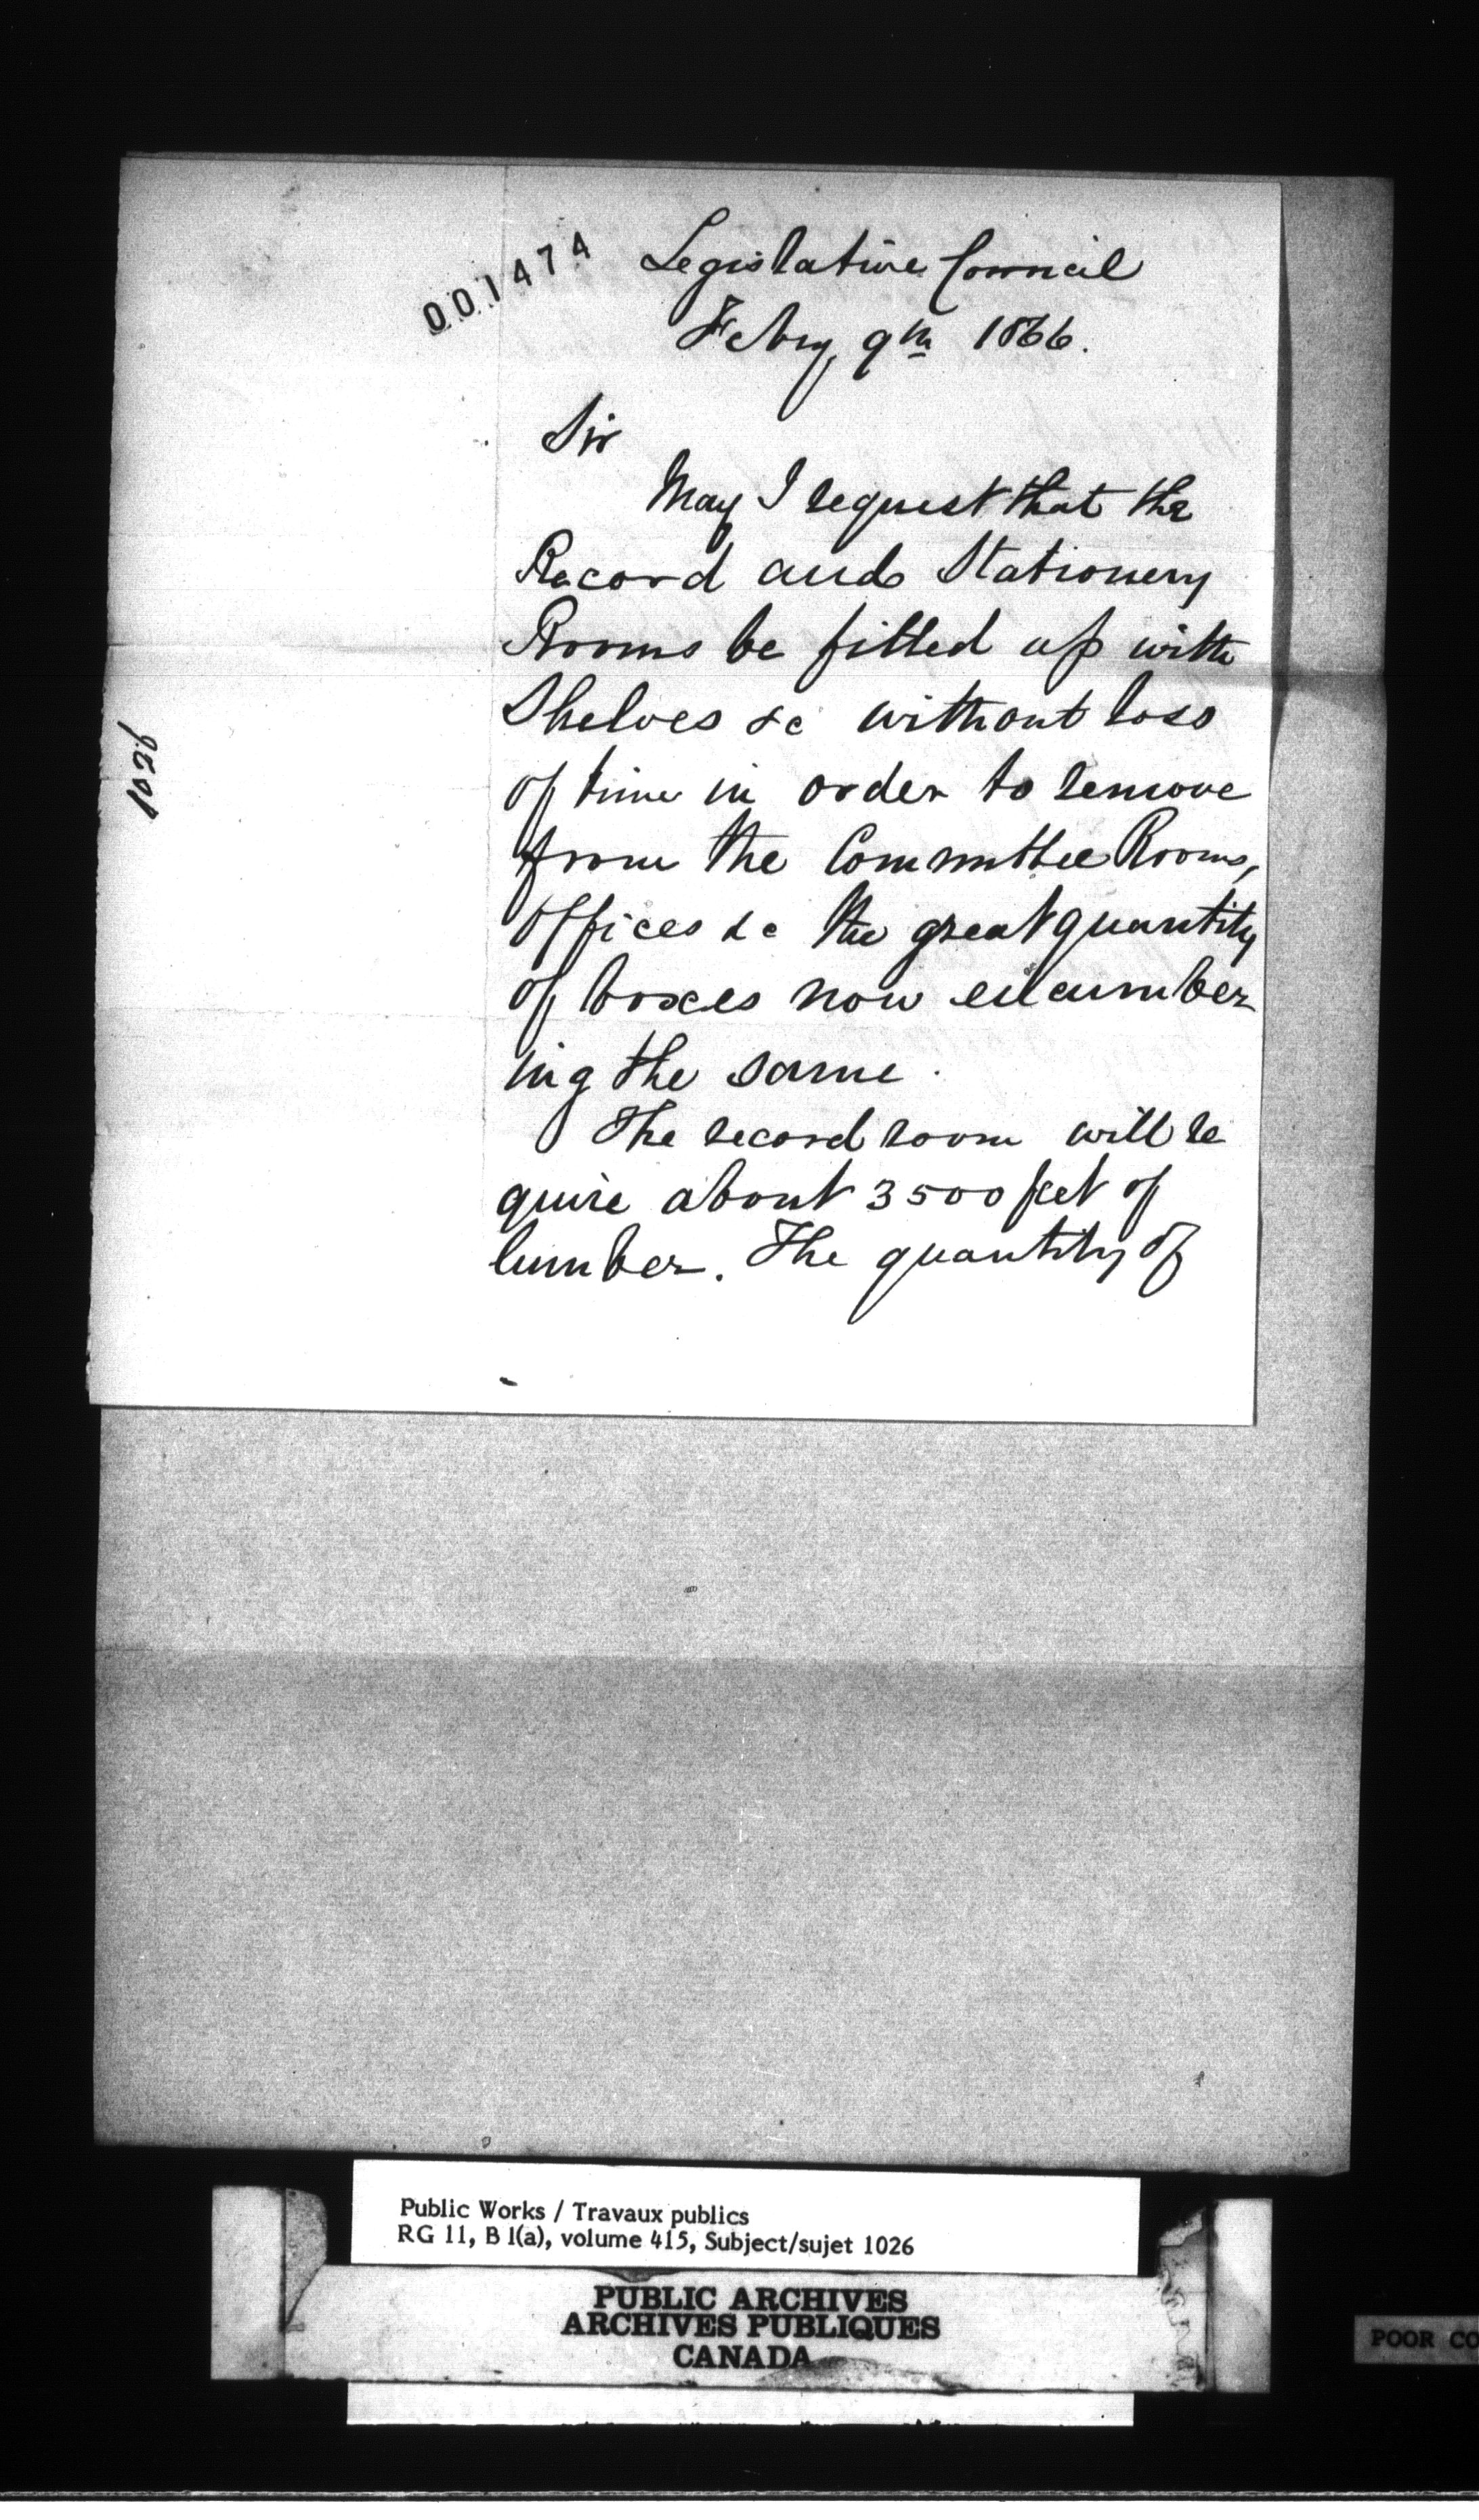 001474
Legislative Council
Febry 9th 1866.
Sir
May I request that the
Record and Stationery
Rooms be fitted up with
Shelves &c without loss
of time in order to remove
from the Committee Rooms,
Offices &c the great quantity
of boxes now encumber
ing the same.
The record room will re
quire about 3500 feet of
lumber. The quantity of
1026
Public Works / Travaux publics
RG 11, B 1(a), volume 415, Subject/sujet 1026
PUBLIC ARCHIVES
ARCHIVES PUBLIQUES
CANADA
POOR CO